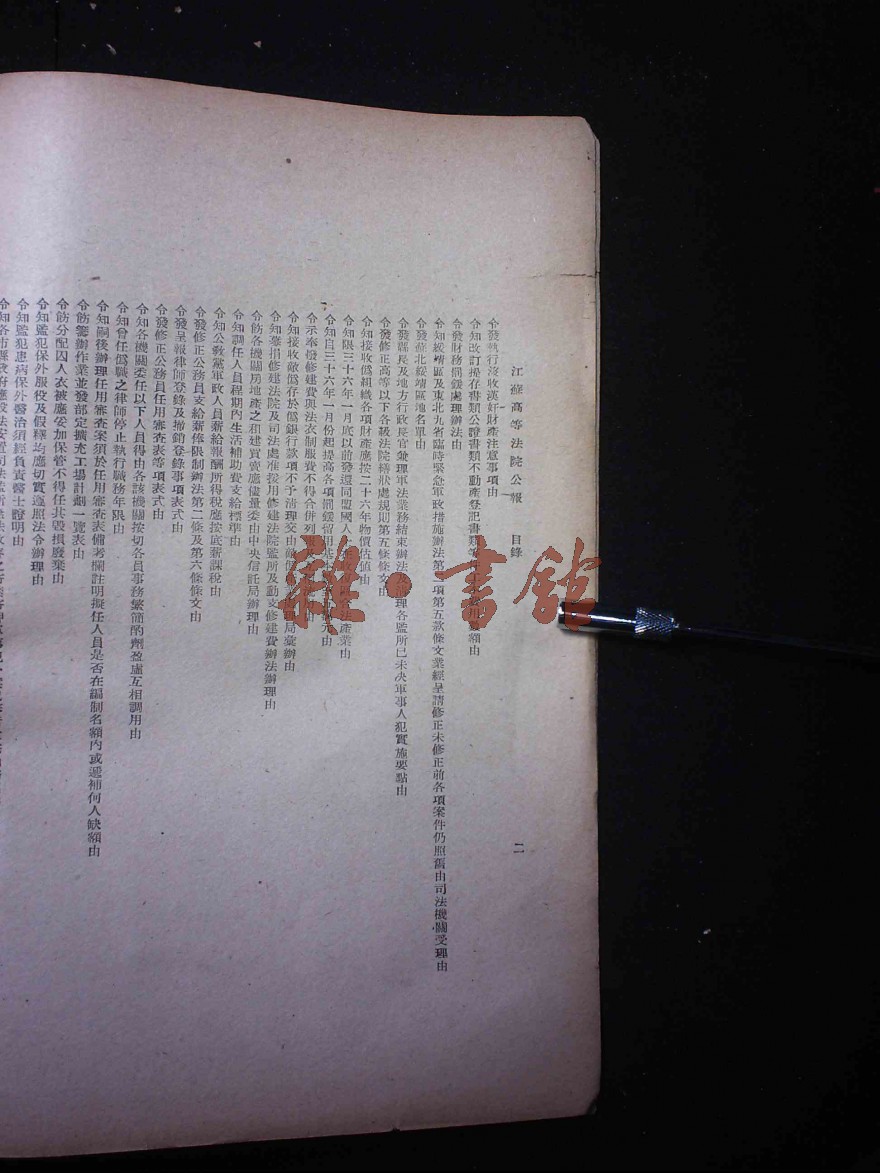 江蘇高等法院公報　目錄　二
令發執行沒收漢奸財產注意事項由
令知改訂提存書類公證書類不動產登記書類等
令發財務罰鍰處理辦法由
令知綏靖區及東北九省臨時緊急軍政措施辦法第二項第五款條文業經呈請修正未修正前各項案件仍照舊由司法機關受理由
令發蘇北綏靖區地名單由
令發縣長及地方行政長官兼理軍法業務結束辦法及清理各監所已未決軍事人犯實施要點由
令發修正高等以下各級法院轄狀處規則第五條條文由
令知接收僞組織各項財產應按二十六年物價估值由
令知限三十六年一月底以前發還同盟國人產業由
令知自三十六年一月份起提高各項罰鍰留用基元由
令示奉撥修建費與法衣制服費不得合併列報由
令知接收敵僞存於僞銀行款項不予清理交由敵僞局彙辦由
令知募捐修建法院及司法處准按用修建法院監所及動支修建費辦法辦理由
令飭各機關房地產之租建買賣應儘量委由中央信託局辦理由
令知調任人員程期內生活補助費支給標準由
令知公教黨軍政人員薪給報酬所得稅應按底薪課稅由
令發修正公務員支給薪俸限制辦法第二條及第六條條文由
令發呈報律師登錄及撤銷登錄事項表式由
令發修正公務員任用審查表等項表式由
令知各機關委任以下人員得由各該機關按切各員事務繁簡酌劑盈虛互相調用由
令知曾任僞職之律師停止執行職務年限由
令知嗣後辦理任用審查案須於任用審查表備考欄註明擬任人員是否在編制名額內或遞補何人缺額由
令飭籌辦作業並發部定擴充工場計劃一覽表由
令飭分配囚人衣被應妥加保管不得任其毀損廢棄由
令知監犯保外服役及假釋均應切實遵照法令辦理由
令知監犯患病保外醫治須經負責醫士證明由
令知各市縣政府應設法安置司法監所
雜·書館